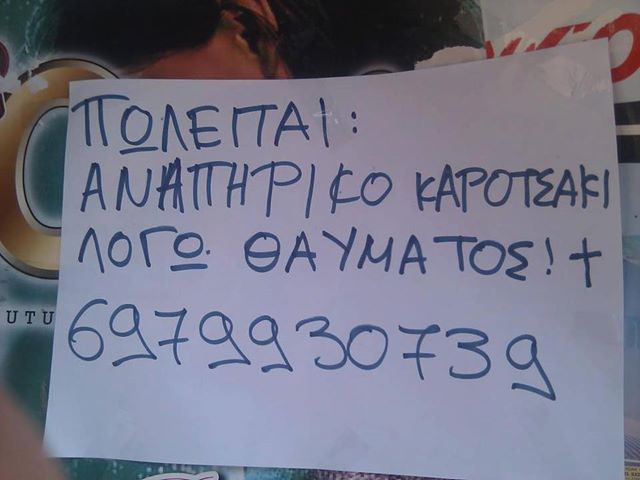 ΠΩΛΕΙΤΑΙ:
ΑΝΑΠΗΡΙΚΟ ΚΑΡΟΤΣΑΚΙ
ΛΟΓΩ ΘΑΥΜΑΤΟΣ! †
6979930739
UTU